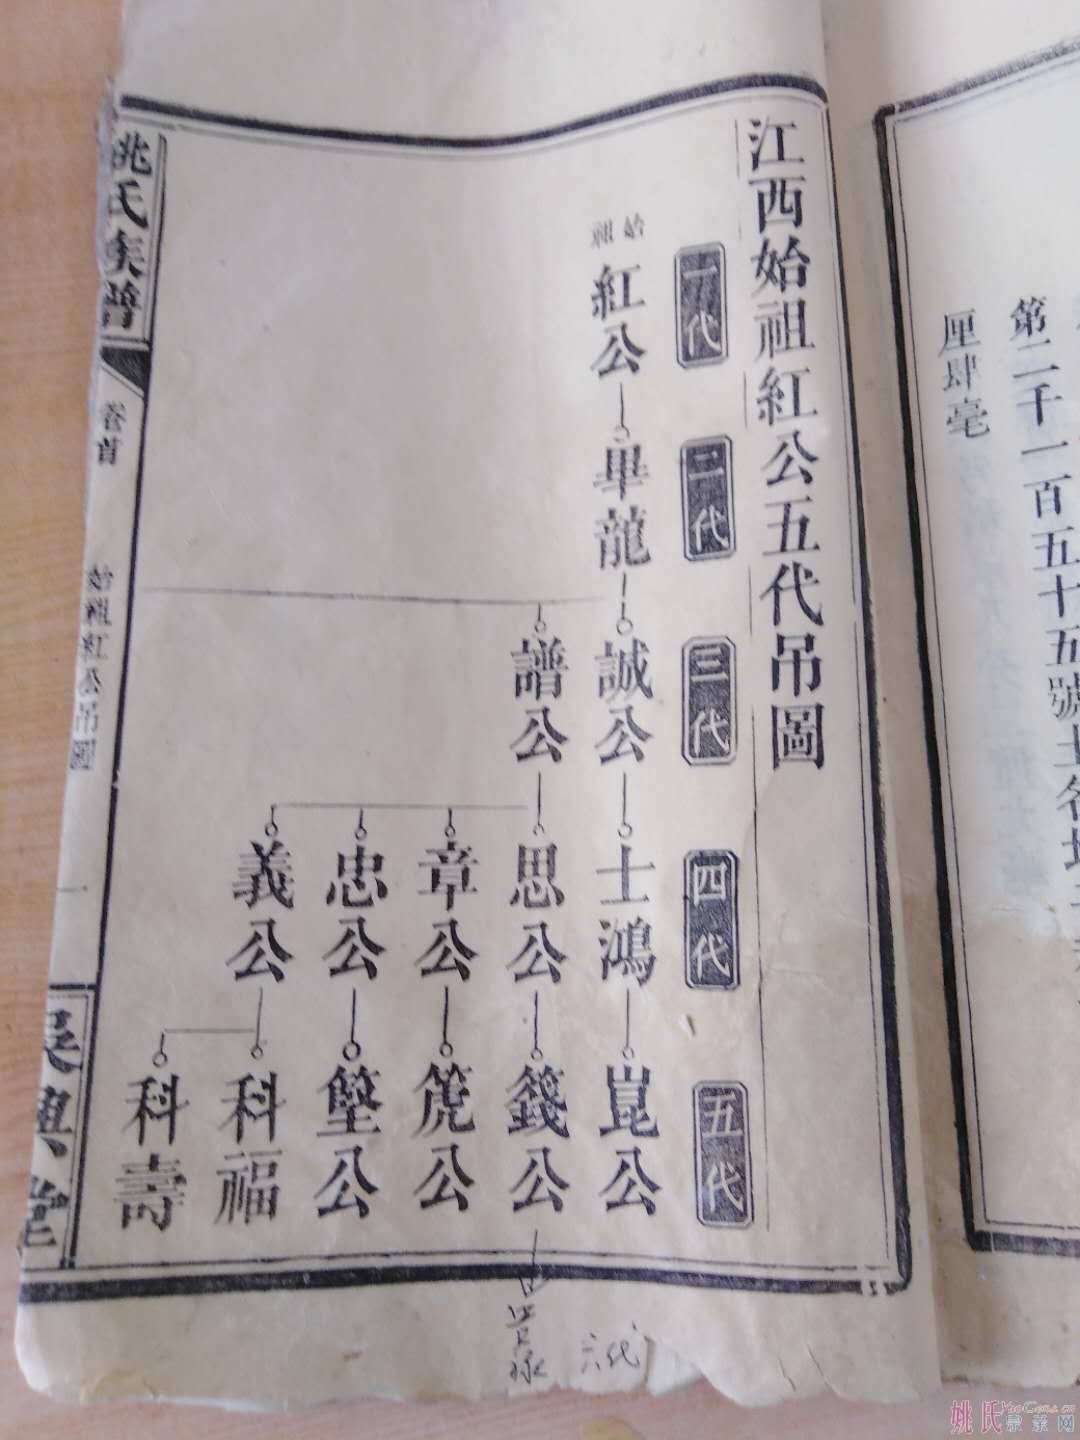 第二千一百五十五號土名
厘肆毫
江西始祖紅公五代吊圖
一代
二代
三代
四代
五代
始祖
紅公
畢龍
誠公
士鴻
崑公
譜公
思公
籛公
章公
箎公
忠公
義公
科福
科壽
姚氏族譜
卷首
始祖紅公吊圖
一
吳興堂
六代
姚氏宗亲网
YaoGens.cn